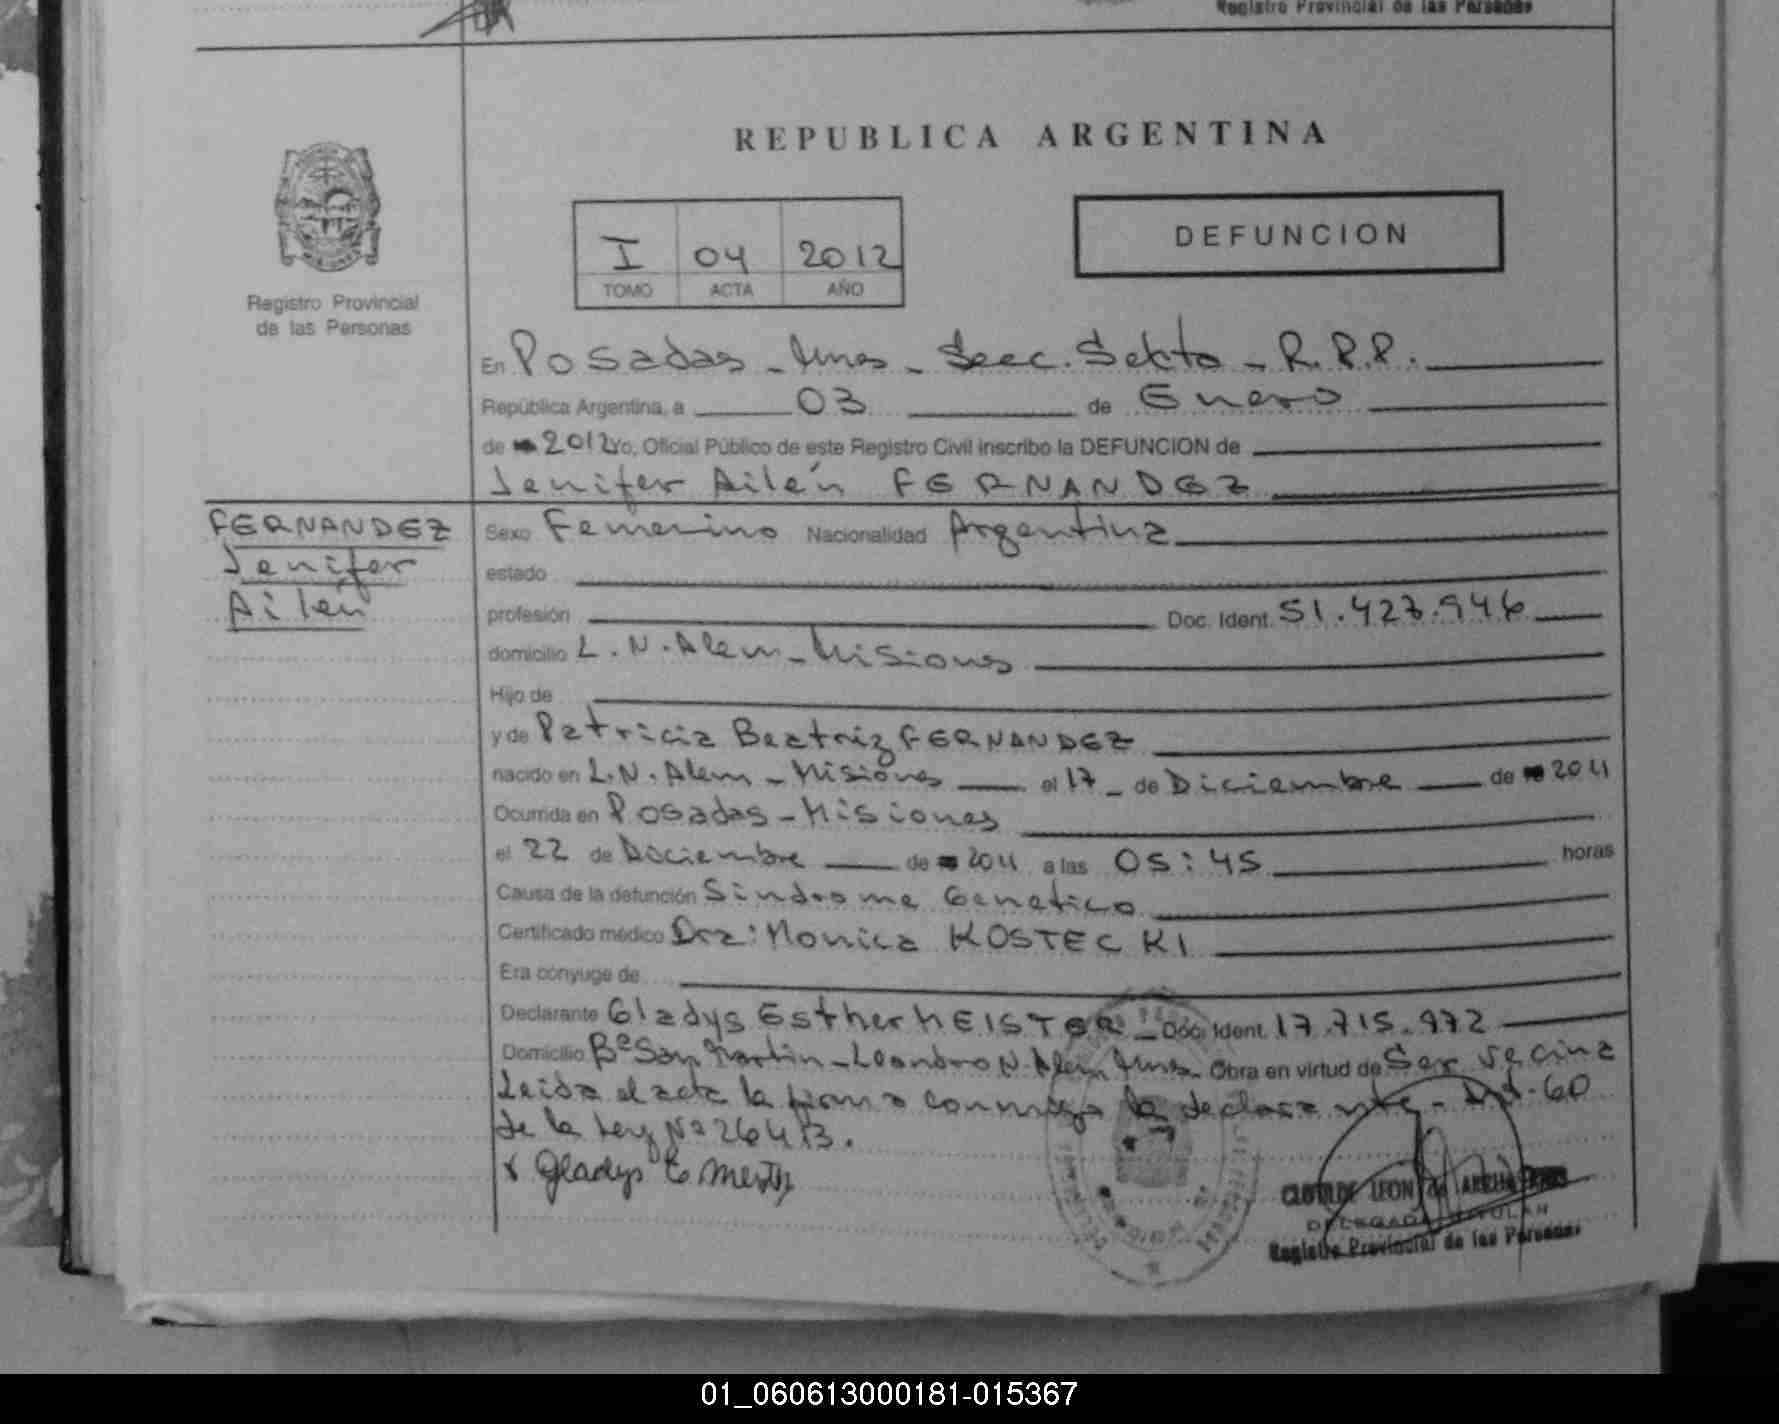 Registro Provincial de las Personas
REPUBLICA ARGENTINA
I 04 2012
TOMO ACTA AÑO
DEFUNCION
MISIONES
Registro Provincial
de las Personas
En Posadas - Mnes - Secc. Sekta - R.P.P.
República Argentina, a 03 de Enero
de 2012 Yo, Oficial Público de este Registro Civil inscribo la DEFUNCION de
Jenifer Ailén FERNANDEZ
FERNANDEZ
Jenifer
Ailén
Sexo Femenino Nacionalidad Argentina
estado
profesión Doc. Ident. 51.427.946
domicilio L.N. Alem - Misiones
Hijo de
y de Patricia Beatriz FERNANDEZ
nacido en L.N. Alem - Misiones el 17 - de Diciembre de 2011
Ocurrida en Posadas - Misiones
el 22 de Diciembre de 2011 a las 05:45 horas
Causa de la defunción Sindrome Genetico
Certificado médico Dra: Monica KOSTECKI
Era cónyuge de
Declarante Gladys Esther MEISTER - Doc. Ident. 17.715.972
Domicilio Bº San Martin - Leandro N. Alem Mnes. Obra en virtud de Ser vecina
Leida el acta la firma conmigo la declarante - Art. 60
de la Ley Nº 26413.
x Gladys E
CLOTILDE LEON de
DELEGADA TITULAR
Registro Provincial de las Personas
01_060613000181-015367